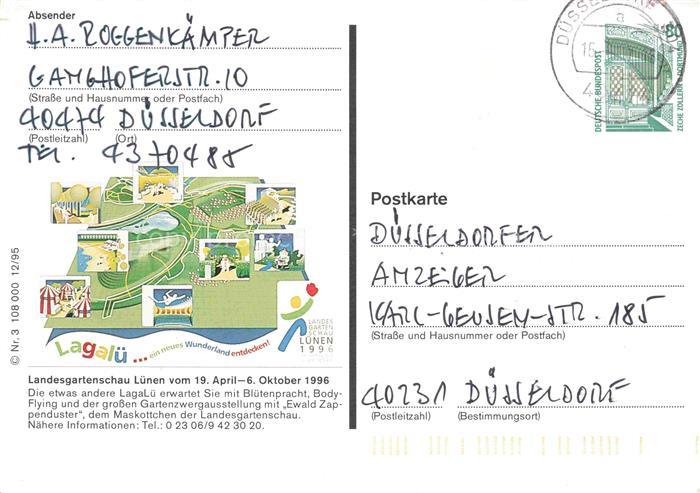 Absender
H.A. ROGGENKÄMPER
GANGHOFERSTR. 10
(Straße und Hausnummer oder Postfach)
40474 DÜSSELDORF
(Postleitzahl) (Ort)
TEL. 4370485
© Nr. 3 1108 000 12/95
LANDES
GARTEN
SCHAU
LÜNEN
1996
Lagalü ... ein neues Wunderland entdecken!
Landesgartenschau Lünen vom 19. April–6. Oktober 1996
Die etwas andere LagaLü erwartet Sie mit Blütenpracht, Body-
Flying und der großen Gartenzwergausstellung mit „Ewald Zap-
penduster“, dem Maskottchen der Landesgartenschau.
Nähere Informationen: Tel.: 0 23 06/9 42 30 20.
DÜSSELDORF
a
80
DEUTSCHE BUNDESPOST
ZECHE ZOLLERN II DORTMUND
Postkarte
DÜSSELDORFER
ANZEIGER
KARL-GEUSEN-STR. 185
(Straße und Hausnummer oder Postfach)
40231 DÜSSELDORF
(Postleitzahl) (Bestimmungsort)